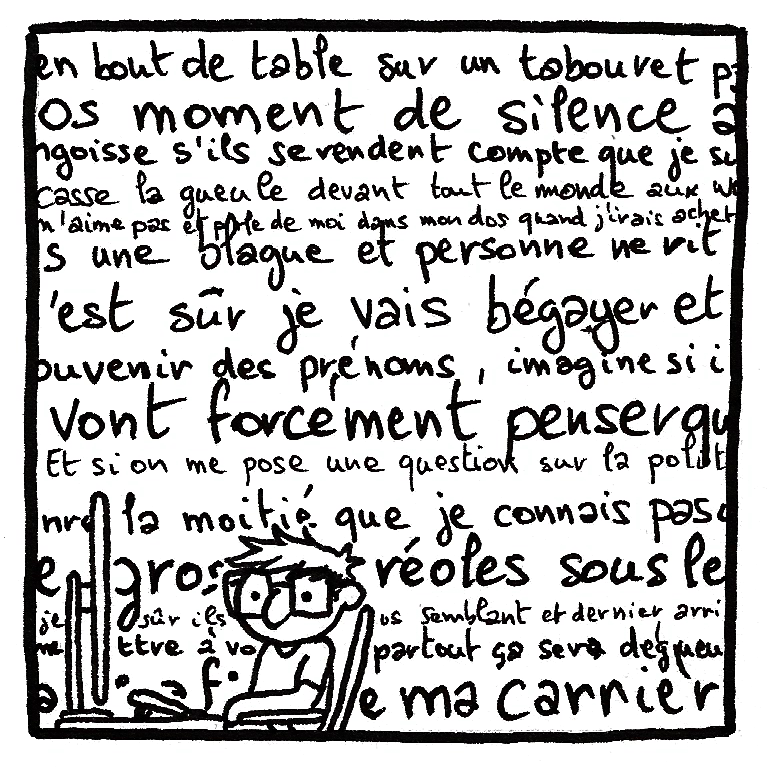 en bout de table sur un tabouret p
os moment de silence a
ngoisse s'ils se rendent compte que je su
casse la gueule devant tout le monde aux w
n'aime pas et parle de moi dans mon dos quand j'irais achet
s une blague et personne ne rit
'est sûr je vais bégayer et
ouvenir des prénoms, imagine si i
vont forcément penser qu
Et si on me pose une question sur la polit
la moitié que je connais pas
e gros réoles sous le
je sûr ils os semblant et dernier arri
me ttre à vo partout ça sera dégueu
a f e ma carrièr